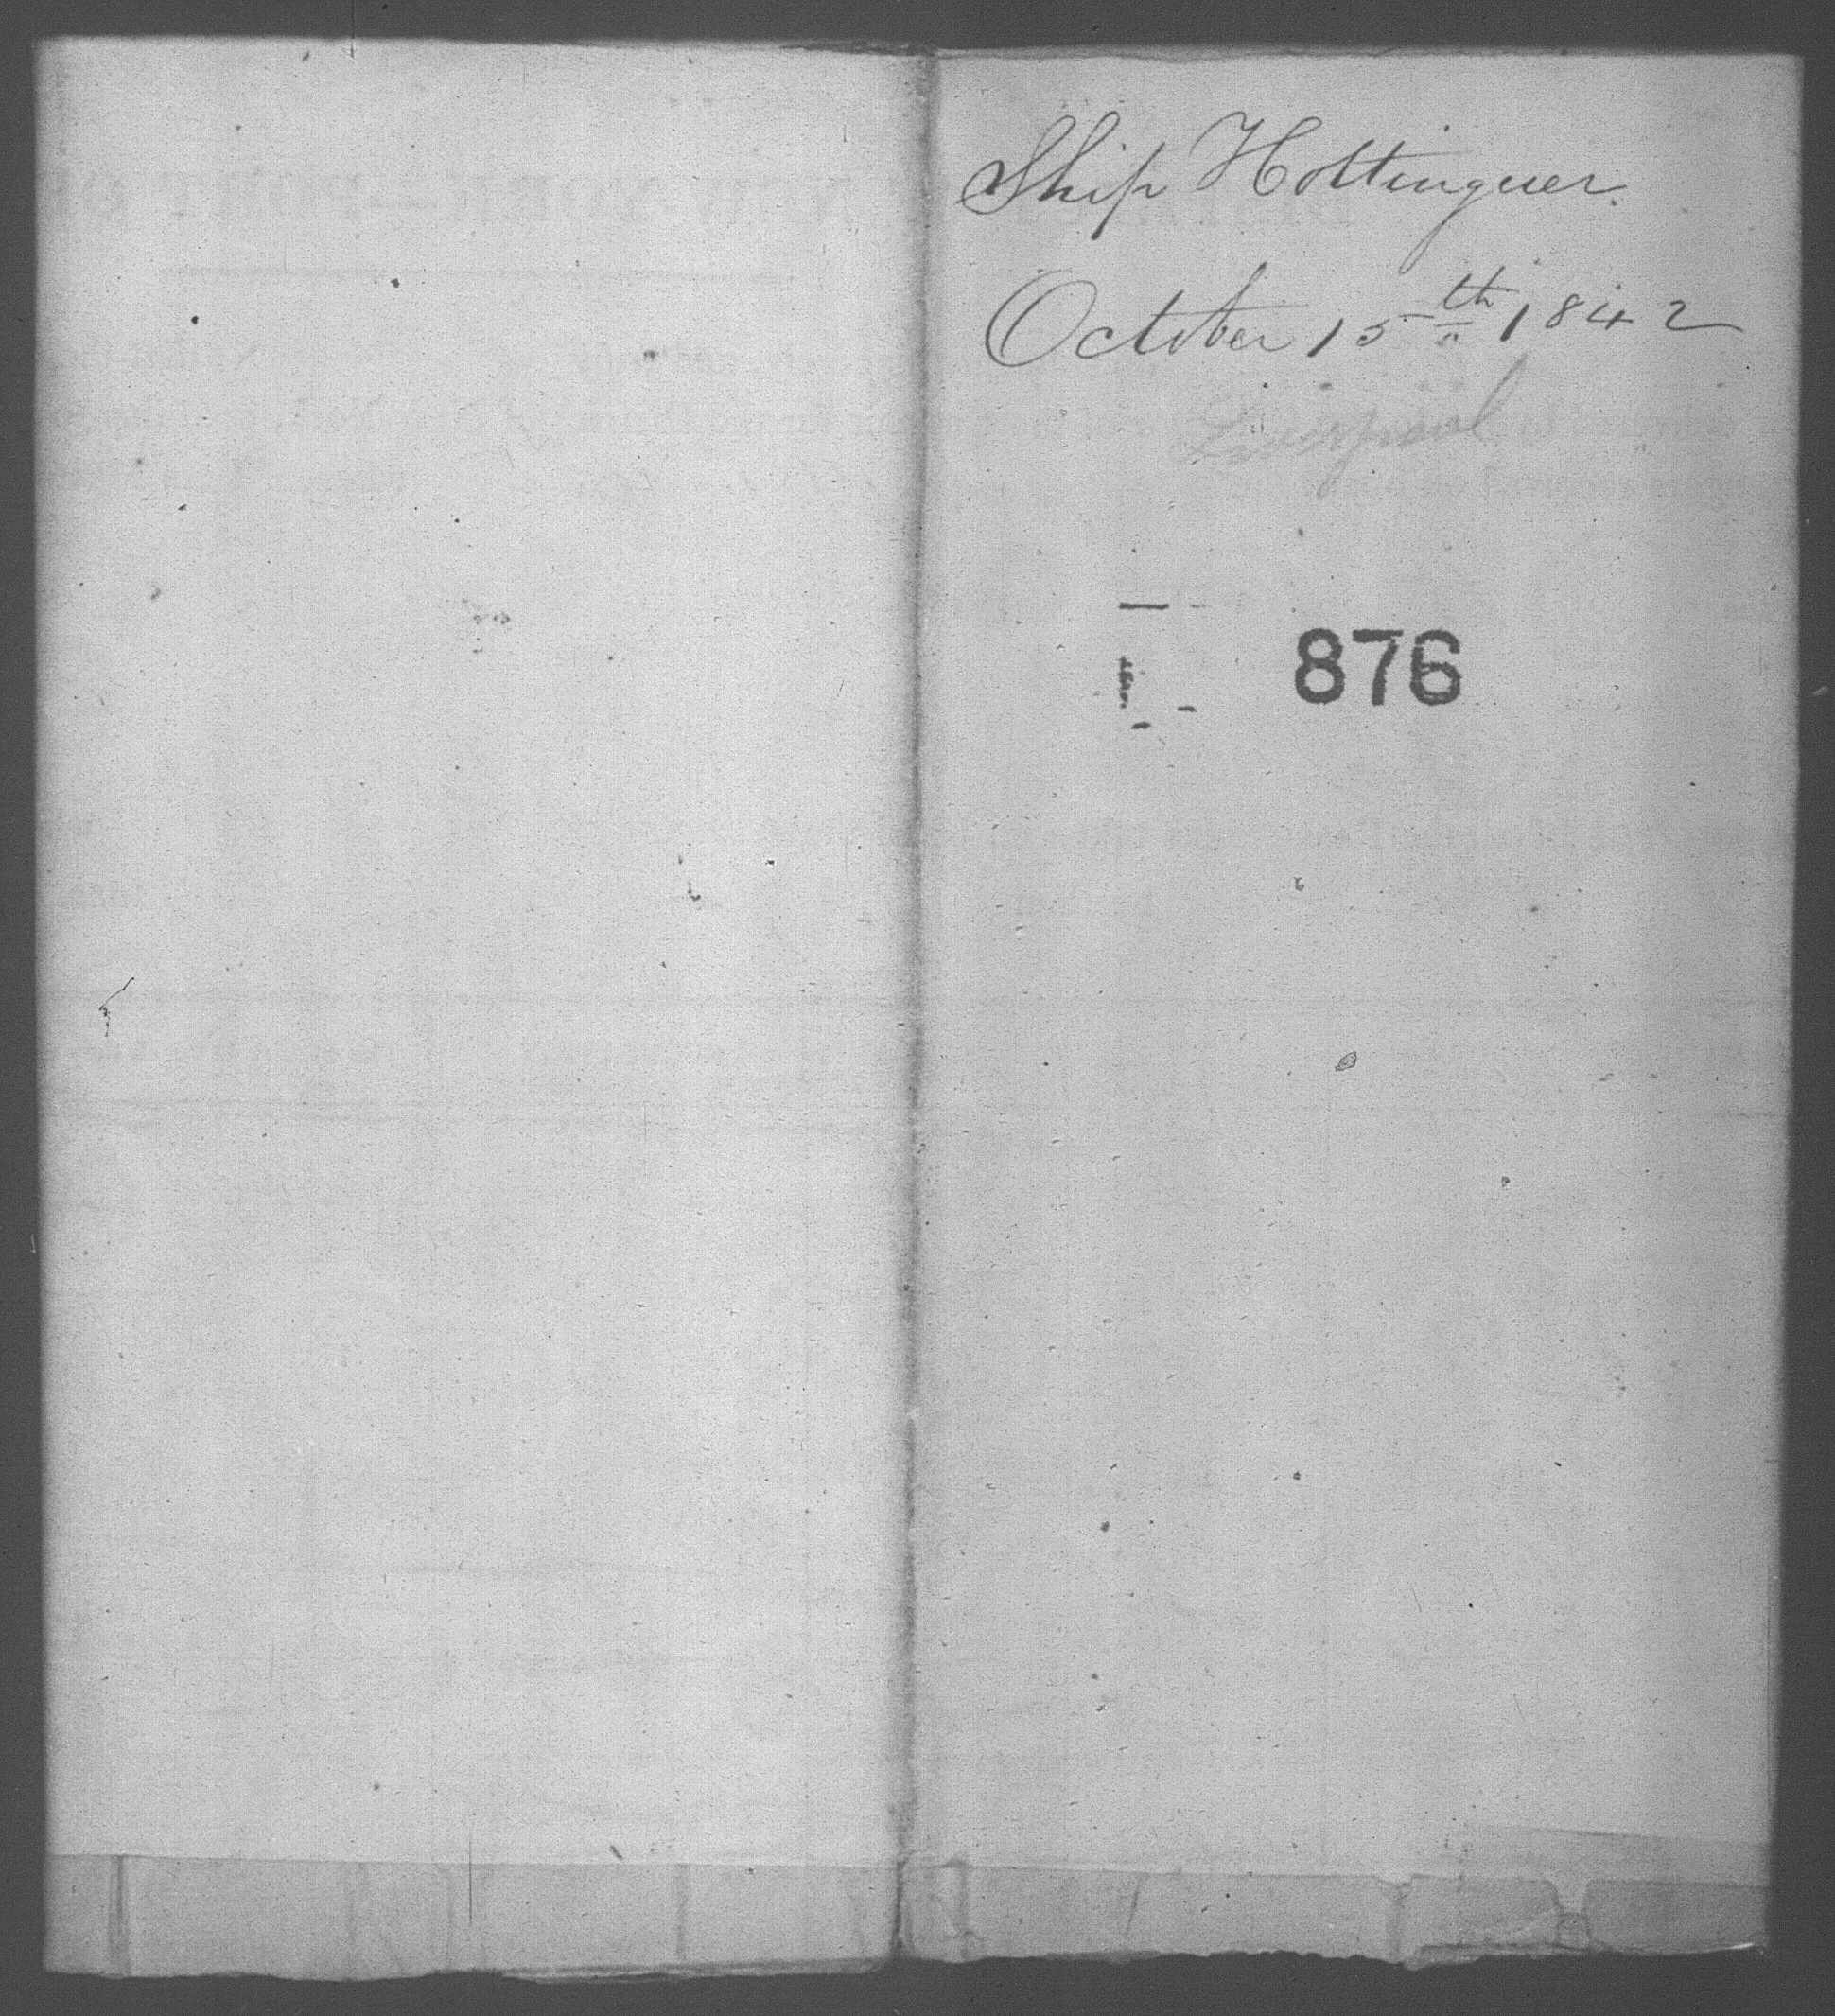 Ship Hottinguer.
October 15th 1842
Liverpool
876